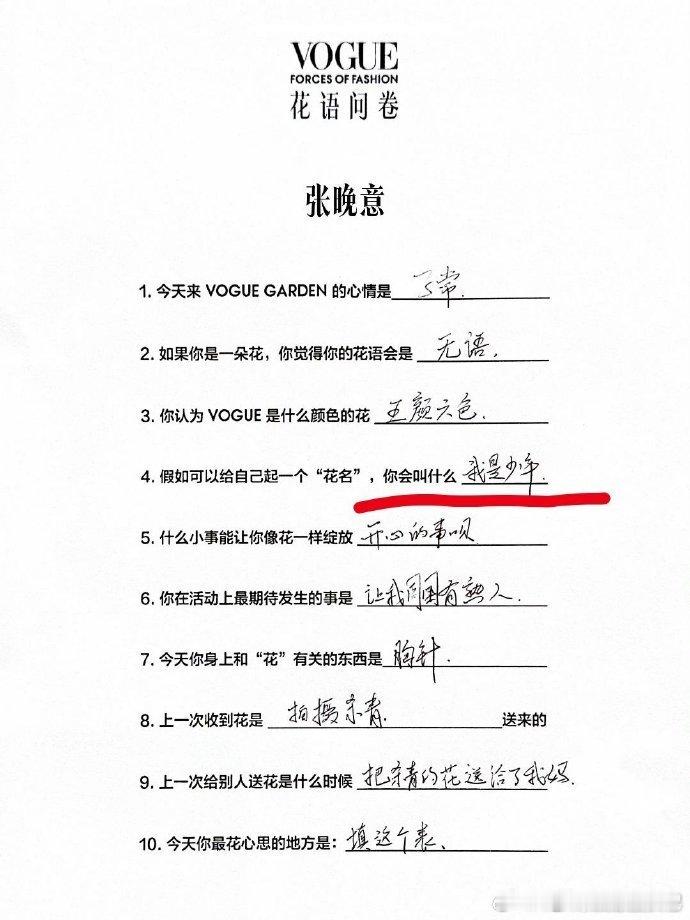 VOGUE
FORCES OF FASHION
花语问卷
张晚意
1. 今天来 VOGUE GARDEN 的心情是 了常.
2. 如果你是一朵花，你觉得你的花语会是 无语.
3. 你认为 VOGUE 是什么颜色的花 五颜六色.
4. 假如可以给自己起一个“花名”，你会叫什么 我是少年.
5. 什么小事能让你像花一样绽放 开心的事呗
6. 你在活动上最期待发生的事是 让我周围有熟人.
7. 今天你身上和“花”有关的东西是 胸针.
8. 上一次收到花是 拍摄杀青. 送来的
9. 上一次给别人送花是什么时候 把杀青的花送给了我妈.
10. 今天你最花心思的地方是：填这个表.